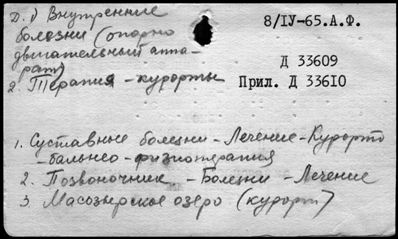 Д. д Внутренние
болезни (опорно
двигательный аппа-
рат)
2. Терапия - курорты
8/IУ-65.А.Ф.
Д 33609
Прил. Д 33610
1. Суставные болезни - Лечение - Курорто
- бальнео - физиотерапия
2. Позвоночник - Болезни - Лечение
3 Масозырское озеро (курорт)